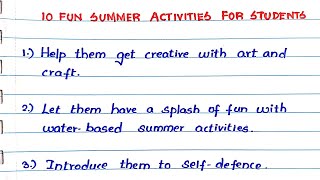 10 FUN SUMMER ACTIVITIES FOR STUDENTS
1.) Help them get creative with art and
craft.
2.) Let them have a splash of fun with
water-based summer activities.
3.) Introduce them to self-defence.